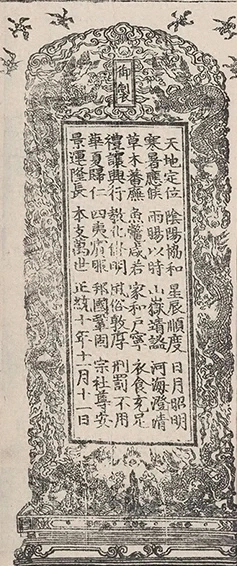 御製
天地定位 陰陽協和 星辰順度 日月昭明
寒暑應候 雨暘以時 山嶽靖謐 河海澄清
草木蕃廡 魚鱉咸若 家和戶寧 衣食充足
禮讓興行 敎化脩明 風俗敦厚 刑罰不用
華夏歸仁 四夷賓服 邦國鞏固 宗社尊安
景運隆長 本支萬世 正統十年十一月十一日